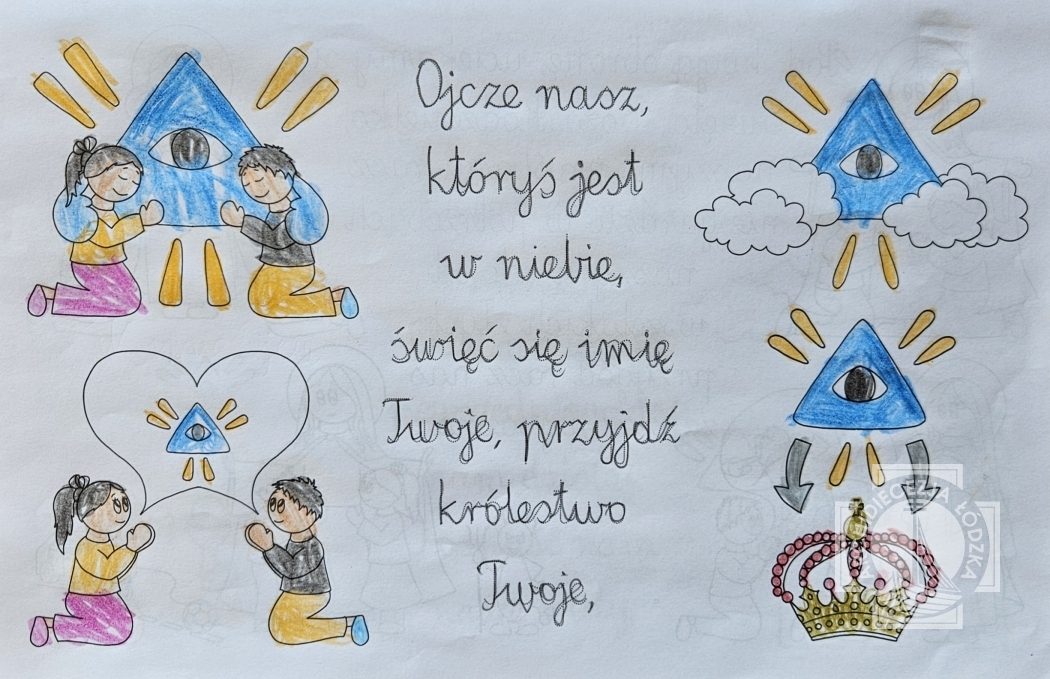 Ojcze nasz,
któryś jest
w niebie,
święć się imię
Twoje, przyjdź
królestwo
Twoje,
DIECEZJA ŁÓDZKA